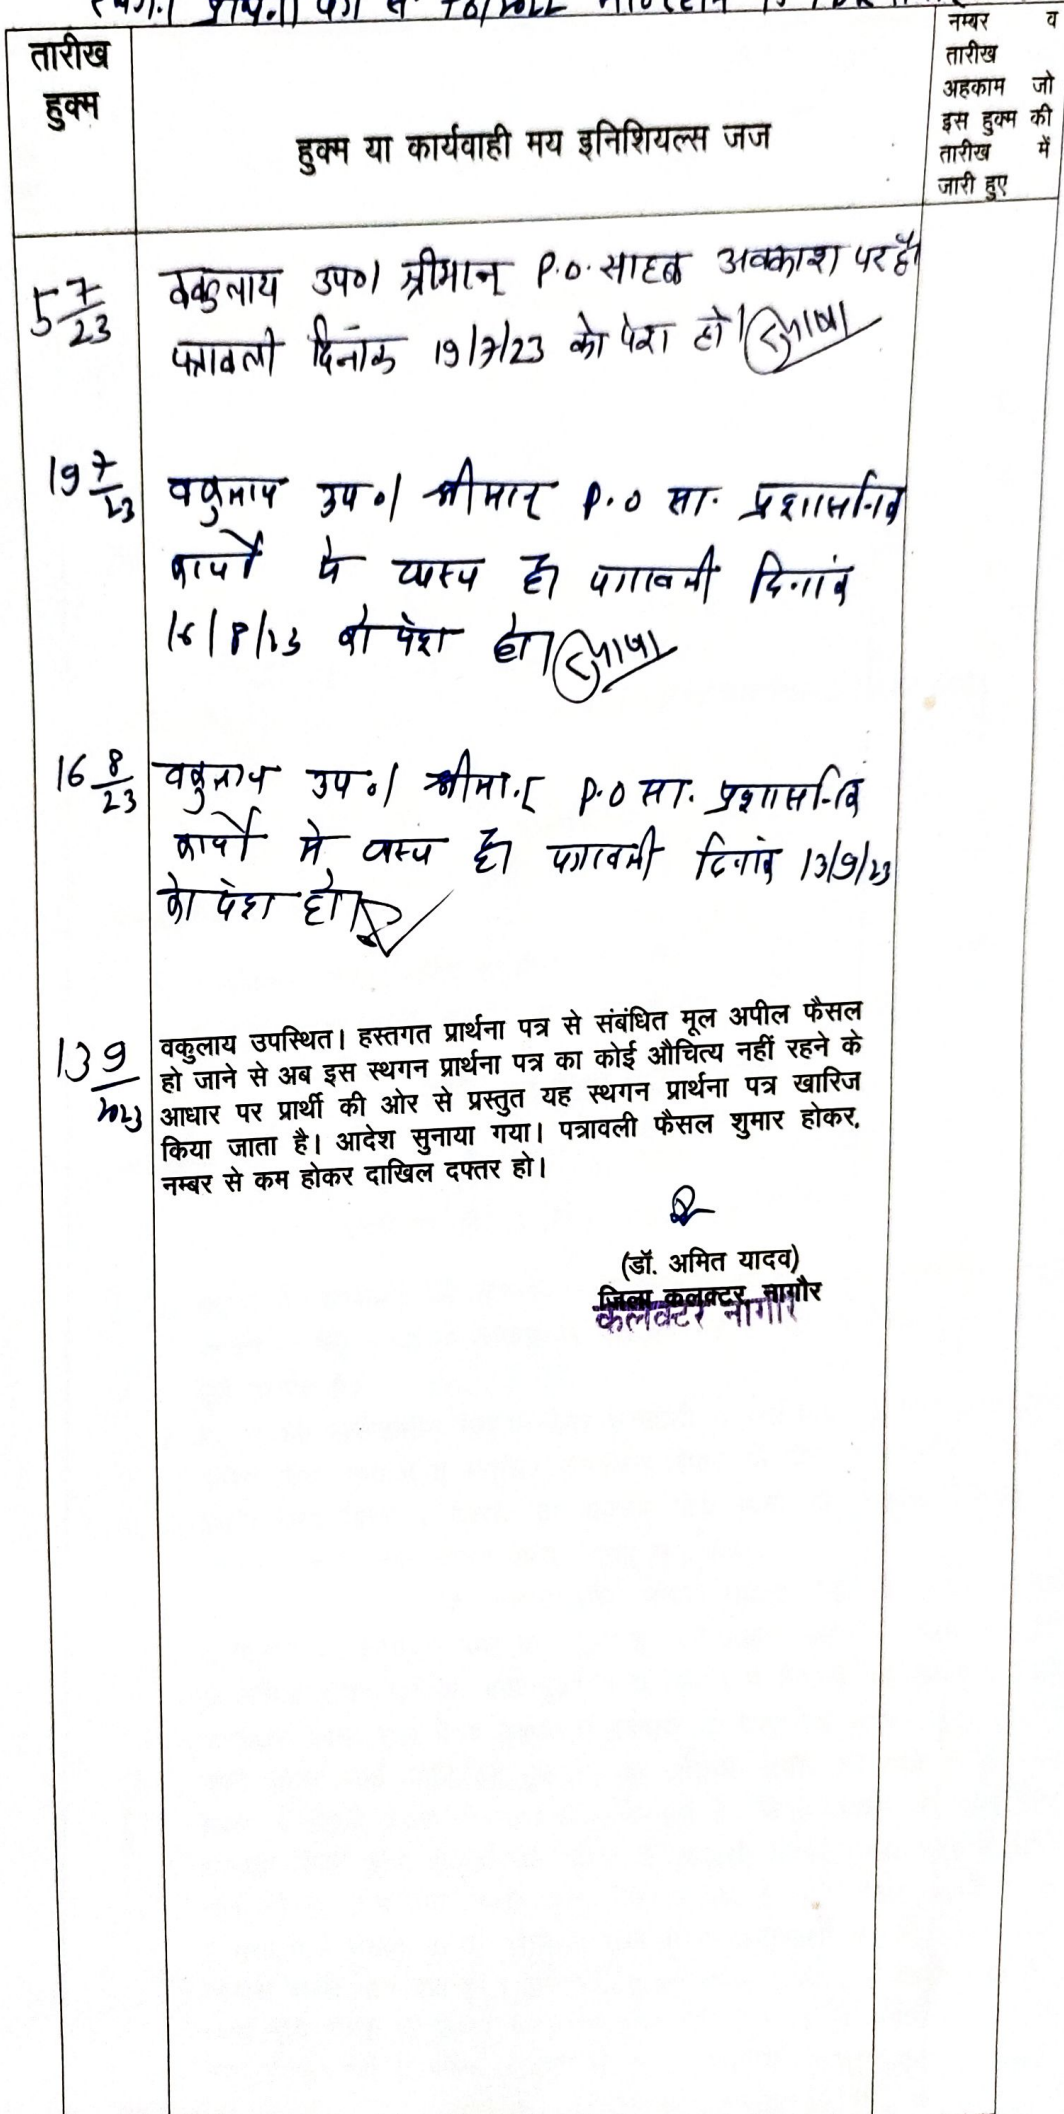 तारीख
हुक्म
हुक्म या कार्यवाही मय इनिशियल्स जज
नम्बर व
तारीख
अहकाम जो
इस हुक्म की
तारीख में
जारी हुए
5 7/23
वकुलाय उप०। श्रीमान् P.O. साहब अवकाश पर है।
पत्रावली दिनांक 19/7/23 को पेश हो।
19 7/23
वकुलाय उप०। श्रीमान् P.O सा. प्रशासनिक
कार्यो मे व्यस्त है। पत्रावली दिनांक
16/8/23 को पेश हो।
16 8/23
वकुलाय उप०। श्रीमान् P.O सा. प्रशासनिक
कार्यो मे व्यस्त है। पत्रावली दिनांक 13/9/23
को पेश हो।
13 9/2023
वकुलाय उपस्थित। हस्तगत प्रार्थना पत्र से संबंधित मूल अपील फैसल
हो जाने से अब इस स्थगन प्रार्थना पत्र का कोई औचित्य नहीं रहने के
आधार पर प्रार्थी की ओर से प्रस्तुत यह स्थगन प्रार्थना पत्र खारिज
किया जाता है। आदेश सुनाया गया। पत्रावली फैसल शुमार होकर,
नम्बर से कम होकर दाखिल दफ्तर हो।
(डॉ. अमित यादव)
जिला कलक्टर नागौर
कलक्टर नागौर